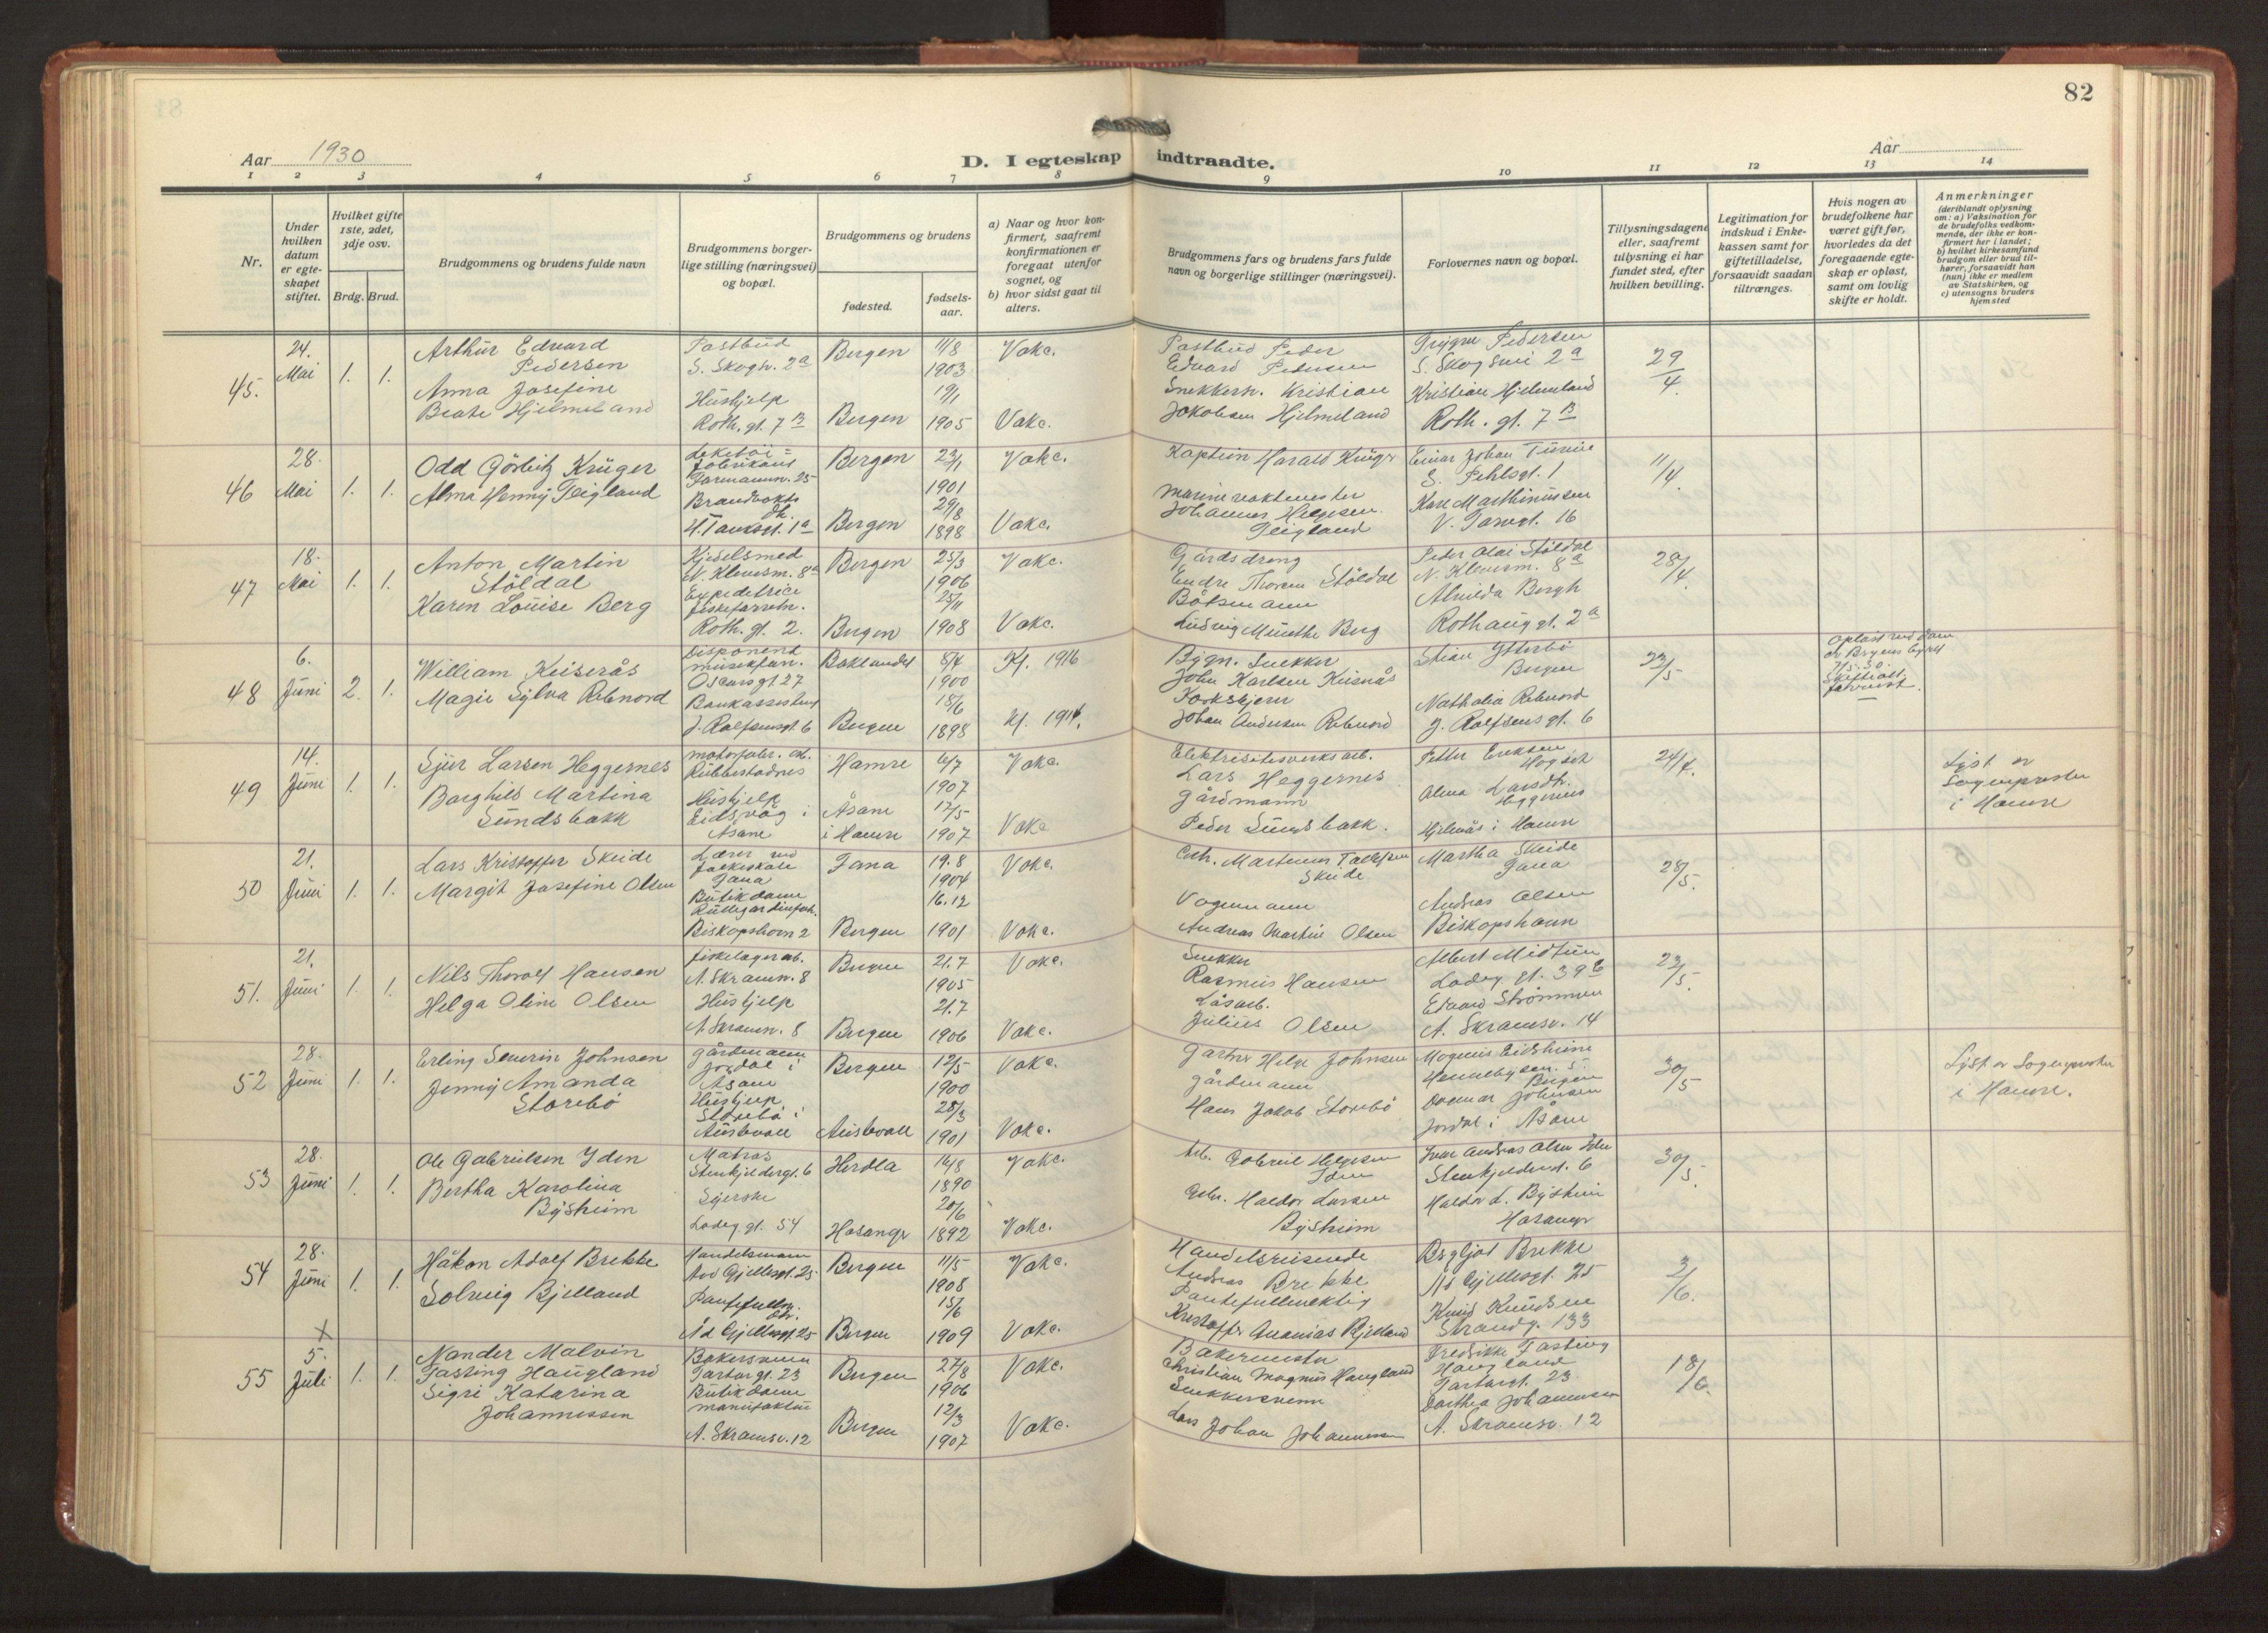 82
Aar 1930
D. I egteskap indtraadte.
Aar
1 2 3 4 5 6 7 8 9 10 11 12 13 14
Nr.
Under hvilken datum er egteskapet stiftet.
Hvilket gifte 1ste, 2det, 3dje osv.
Brdg. Brud.
Brudgommens og brudens fulde navn
Brudgommens borgerlige stilling (næringsvei) og bopæl.
Brudgommens og brudens
fødested.
fødselsaar.
a) Naar og hvor konfirmert, saafremt konfirmationen er foregaat utenfor sognet, og
b) hvor sidst gaat til alters.
Brudgommens fars og brudens fars fulde navn og borgerlige stillinger (næringsvei).
Forlovernes navn og bopæl.
Tillysningsdagene eller, saafremt tillysning ei har fundet sted, efter hvilken bevilling.
Legitimation for indskud i Enkekassen samt for giftetilladelse, forsaavidt saadan tiltrænges.
Hvis nogen av brudefolkene har været gift før, hvorledes da det foregaaende egteskap er opløst, samt om lovlig skifte er holdt.
Anmerkninger
(deriblandt oplysning om: a) Vaksination for de brudefolks vedkommende, der ikke er konfirmert her i landet; b) hvilket kirkesamfund brudgom eller brud tilhører, forsaavidt han (hun) ikke er medlem av Statskirken, og c) utensogns bruders hjemsted
45. 24. Mai 1. 1.
Arthur Edvard Pedersen
Anna Josefine Beate Hjelmeland
Postbud S. Skogv. 2a
Hushjelp Roth. gt. 7B
Bergen 11/8 1903 Vakc.
Bergen 19/1 1905 Vakc.
Postbud Peder Edvard Pedersen
Snekkersv. Kristian Jakobsen Hjelmeland
Trygve Pedersen S. Skogsvei 2a
Kristian Hjelmeland Roth. gt. 7B
29/4.
46 28. Mai 1. 1.
Odd Görbitz Krüger
Alma Henny Teigland
Leketöi=fabrikant 25
Brandvakts
H. Tanksgt. 1a
Bergen 23/1 1901 Vakc.
Bergen 29/8 1898 Vakc.
Kaptein Harald Krüger
Johannes Helgesen Teigland
Einar Johan
V. Torvgt. 16
11/4
47 18. Mai 1. 1.
Anton Martin Stöldal
Karen Louise Berg
Kjedelsmed N. Klevesm. 8a
Expeditrice
Roth. gt. 2.
Bergen 25/3 1906 Vakc.
Bergen 25/11 1908 Vakc.
Gårdsdreng Endre Stöldal
Båtsmann Ludvig Munthe Berg
Peder Olai Stöldal N. Klevesm. 8a
Alvilda Bergh
Rothaug gt. 2a
28/4.
48 6. Juni 2. 1.
William Keiserås
Magie Sylva Rebnord
Disponent
Oscarsgt 27
Bankassistent
J. Rolfsensgt. 6
Baklandet 8/4 1900 Kf. 1916
Bergen 18/6 1898 Kf. 1914.
Bygn. Snekker John Karlsen
Johan Andersen Rebnord
Stian Ytterbö Bergen
Nathalia Rebnord J. Rolfsens gt. 6
23/5
7/5.30.
49 14. Juni 1. 1.
Sjur Larsen Heggernes
Borghild Martina Sundsbakk
Rubbestadnes
Hushjelp Eidsvåg i Åsane
Hamre 6/7 1907 Vakc.
Åsane i Hamre 17/5 1907 Vakc
Elektrisitetsverksarb. Lars Heggernes
Gårdmann Peder Sundsbakk.
Petter Eriksen
Alma Larsdtr. Heggernes
Hjelmås i Hamre
24/4.
Lyst av Sogneprester i Hamre
50 21. Juni 1. 1.
Lars Kristoffer Skeide
Margit Josefine Olsen
Lærer ved folkeskole Fana
Butikdame Rullegardinfork. Biskopshavn 2
Fana 19.8 1904 Vakc.
Bergen 16.12 1901 Vakc.
Martinus Skeide
Vognmann Andreas Martin Olsen
Martha Skeide Fana
Andreas Olsen Biskopshavn
28/5.
51. 21. Juni 1. 1.
Nils Thoralf Hansen
Helga Oline Olsen
fiskelagerarb. A. Skramsv. 8
Hushjelp A. Skramsv. 8
Bergen 21.7 1905 Vakc.
Bergen 21.7 1906 Vakc.
Snekker Rasmus Hansen
Julius Olsen
Albert Midtun
Ladeg gt. 39
Edvard Strømmen A. Skramsv. 14
23/5.
52 28. Juni 1. 1.
Erling Severin Johnsen
Jenny Amanda Storebö
Gårdmann Jordal i Åsane
Hushjelp Storebö i Austevoll
Bergen 12/5 1900 Vakc.
Austevoll 28/3 1901 Vakc.
Gartner Helge Johnsen
Gårdmann Hans Jakob Storebö
Magnus Eidsheim
Dagmar Johnsen Jordal i Åsane
30/5
Lyst av Sogneprester i Hamre.
53 28. Juni 1. 1.
Ole Gabrielsen Yden
Bertha Karolina Bysheim
Matros Stenkjeldergt. 6
Syerske Ladeg gt. 54
Herdla 16/8 1890 Vakc.
Hosanger 20/6 1892 Vakc.
Arb. Gabriel Helgesen
Haldor Larsen Bysheim
Ivar Andreas Olsen Stenkjeldergt. 6
Haldor L. Bysheim Hosanger
30/5.
54 28. Juni 1. 1.
Håkon Adolf Brekke
Solveig Bjelland
Handelsmann
Gjellesgt. 25
Ad Gjellesgt. 25
Bergen 11/5 1908 Vakc.
Bergen 15/6 1909 Vakc.
Handelsreisende Andreas Brekke
Pantefullmektig Kristoffer Ananias Bjelland
Bergljot Brekke Ad Gjellesgt. 25
Knud Knudsen Strandg. 133
2/6.
x
55 5. Juli 1. 1.
Nander Malvin Fasting Haugland
Sigri Katarina Johannessen
Bakersvenn Tartargt. 23
Butikdame manufaktur A. Skramsv. 12
Bergen 27/8 1906 Vakc.
Bergen 12/3 1907 Vakc.
Bakermester Christian Magnus Haugland
Snekkersvenn Lars Johan Johannessen
Fredrikke Fasting Haugland Tartargt. 23
Dorthea Johannessen A. Skramsv. 12
18/6.